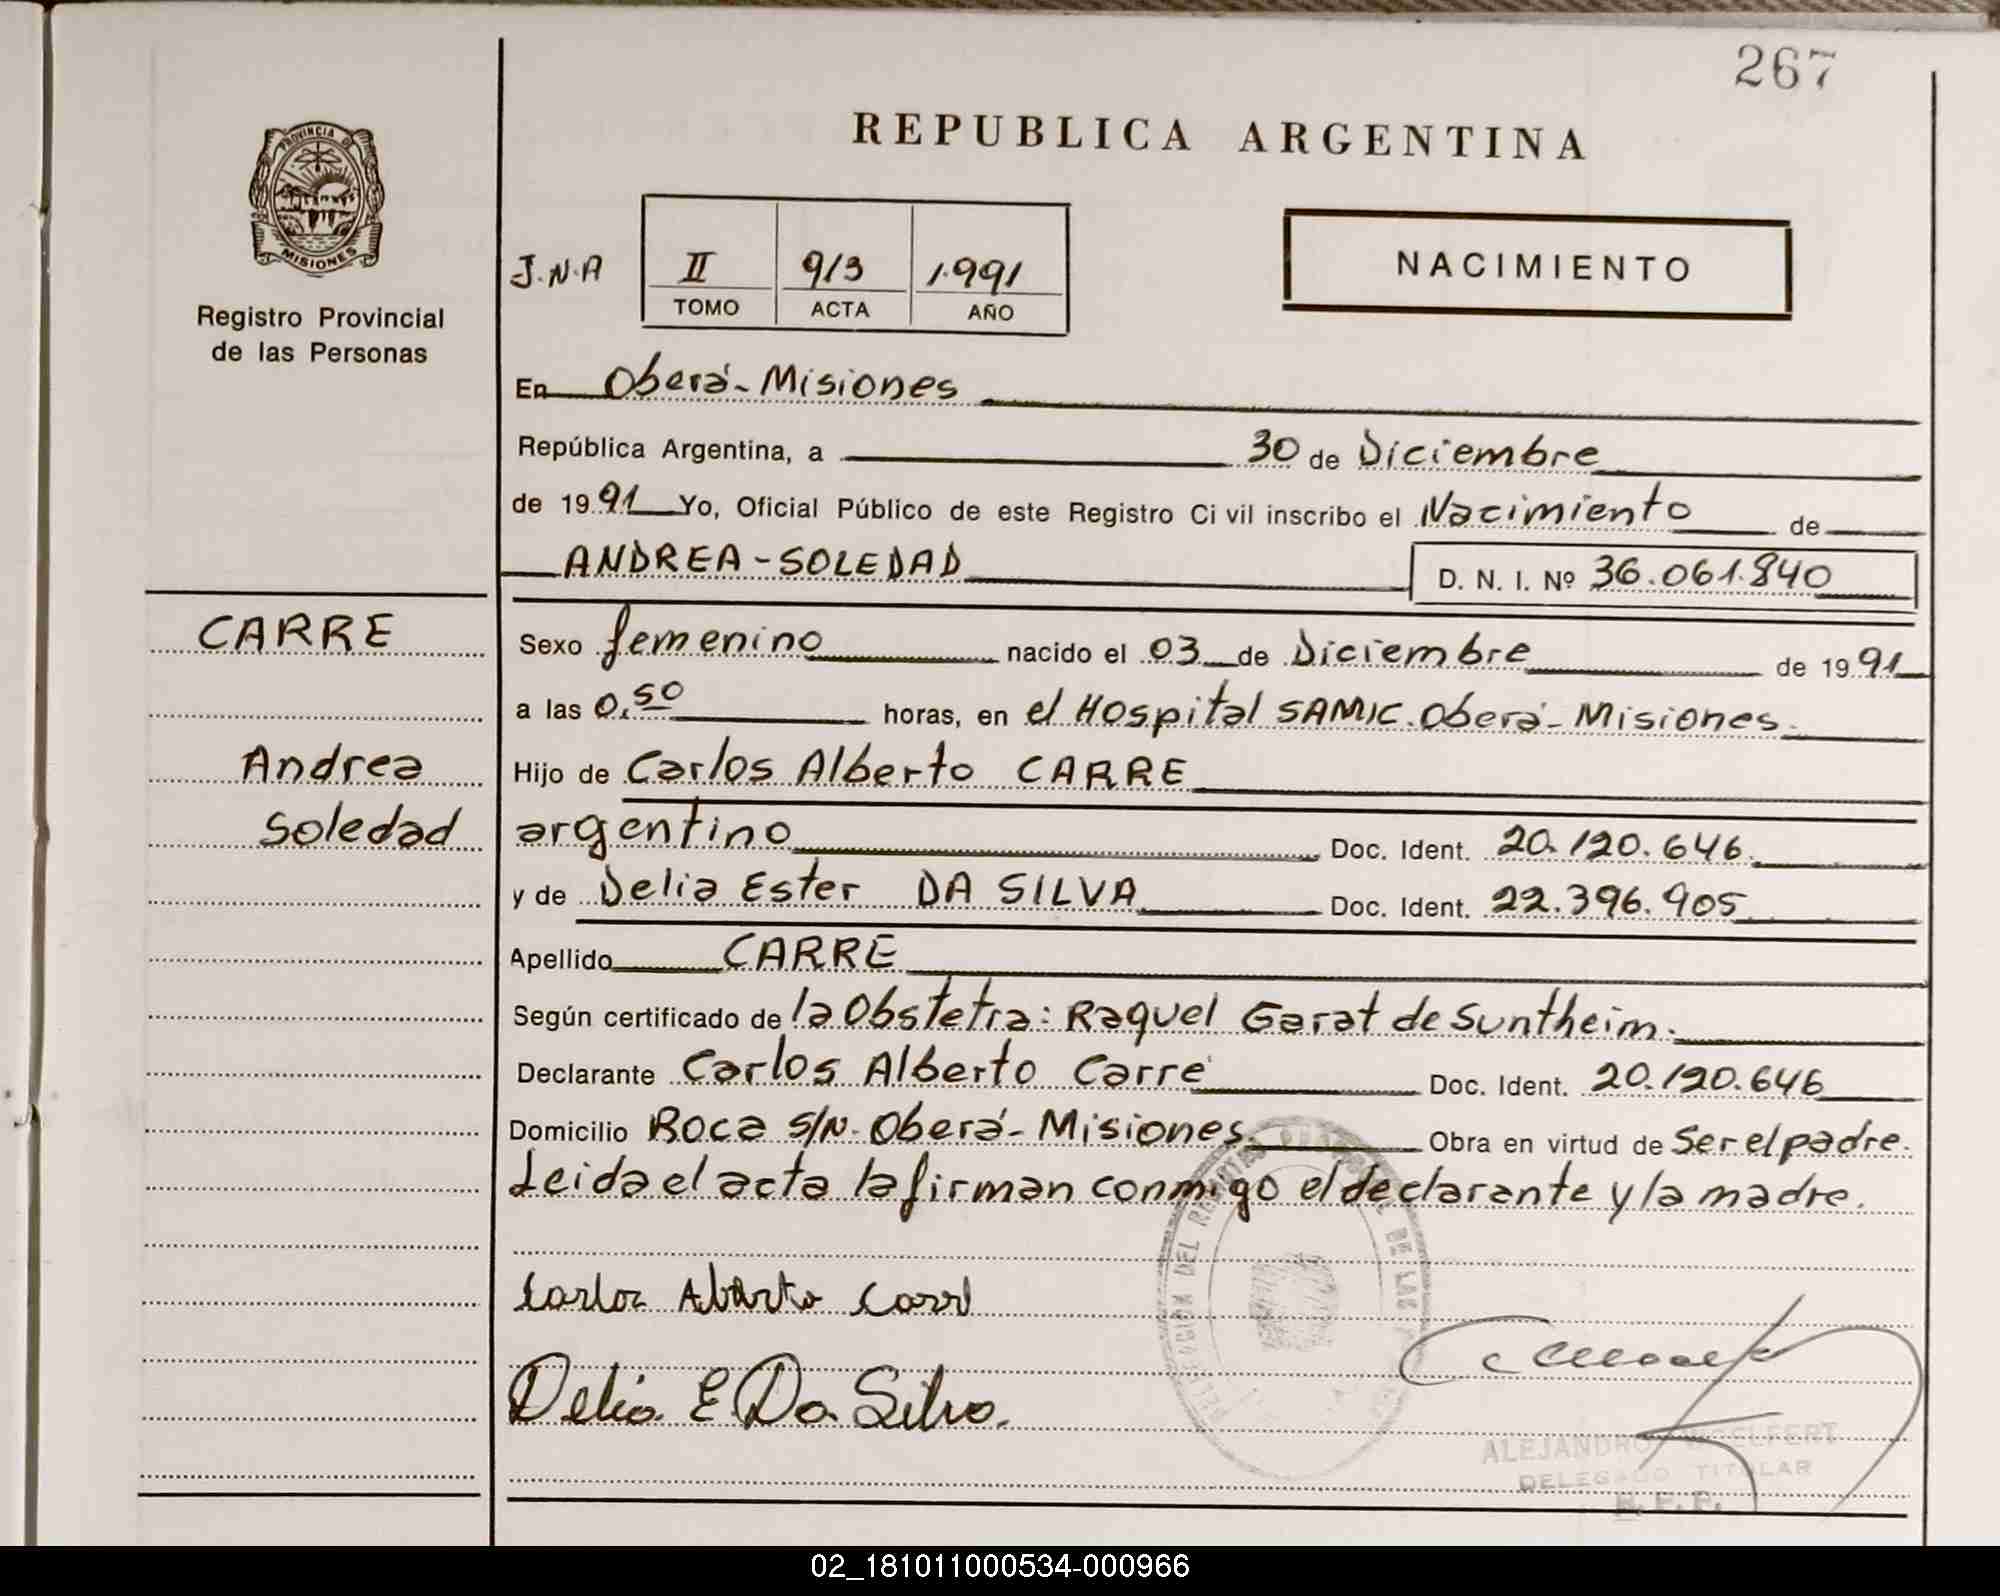 267
PROVINCIA DE
MISIONES
Registro Provincial
de las Personas
REPUBLICA ARGENTINA
J.N.A
II 913 1.991
TOMO ACTA AÑO
NACIMIENTO
En Oberá - Misiones
República Argentina, a 30 de Diciembre
de 1991 Yo, Oficial Público de este Registro Civil inscribo el Nacimiento de
ANDREA - SOLEDAD D. N. I. Nº 36.061.840
CARRE
Andrea
Soledad
Sexo femenino nacido el 03 de Diciembre de 1991
a las 0,50 horas, en el Hospital SAMIC. Oberá - Misiones.
Hijo de Carlos Alberto CARRE
argentino Doc. Ident. 20.120.646.
y de Delia Ester DA SILVA Doc. Ident. 22.396.905
Apellido CARRE
Según certificado de la Obstetra: Raquel Garat de Suntheim.
Declarante Carlos Alberto Carre Doc. Ident. 20.120.646
Domicilio Roca S/N. Oberá - Misiones. Obra en virtud de Ser el padre.
Leida el acta la firman conmigo el declarante y la madre.
Carlos Alberto Carre
Delia E. Da Silva.
DEL REGISTRO DE LAS
ALEJANDRO
DELEGADO TITULAR
R. P. P.
02_181011000534-000966